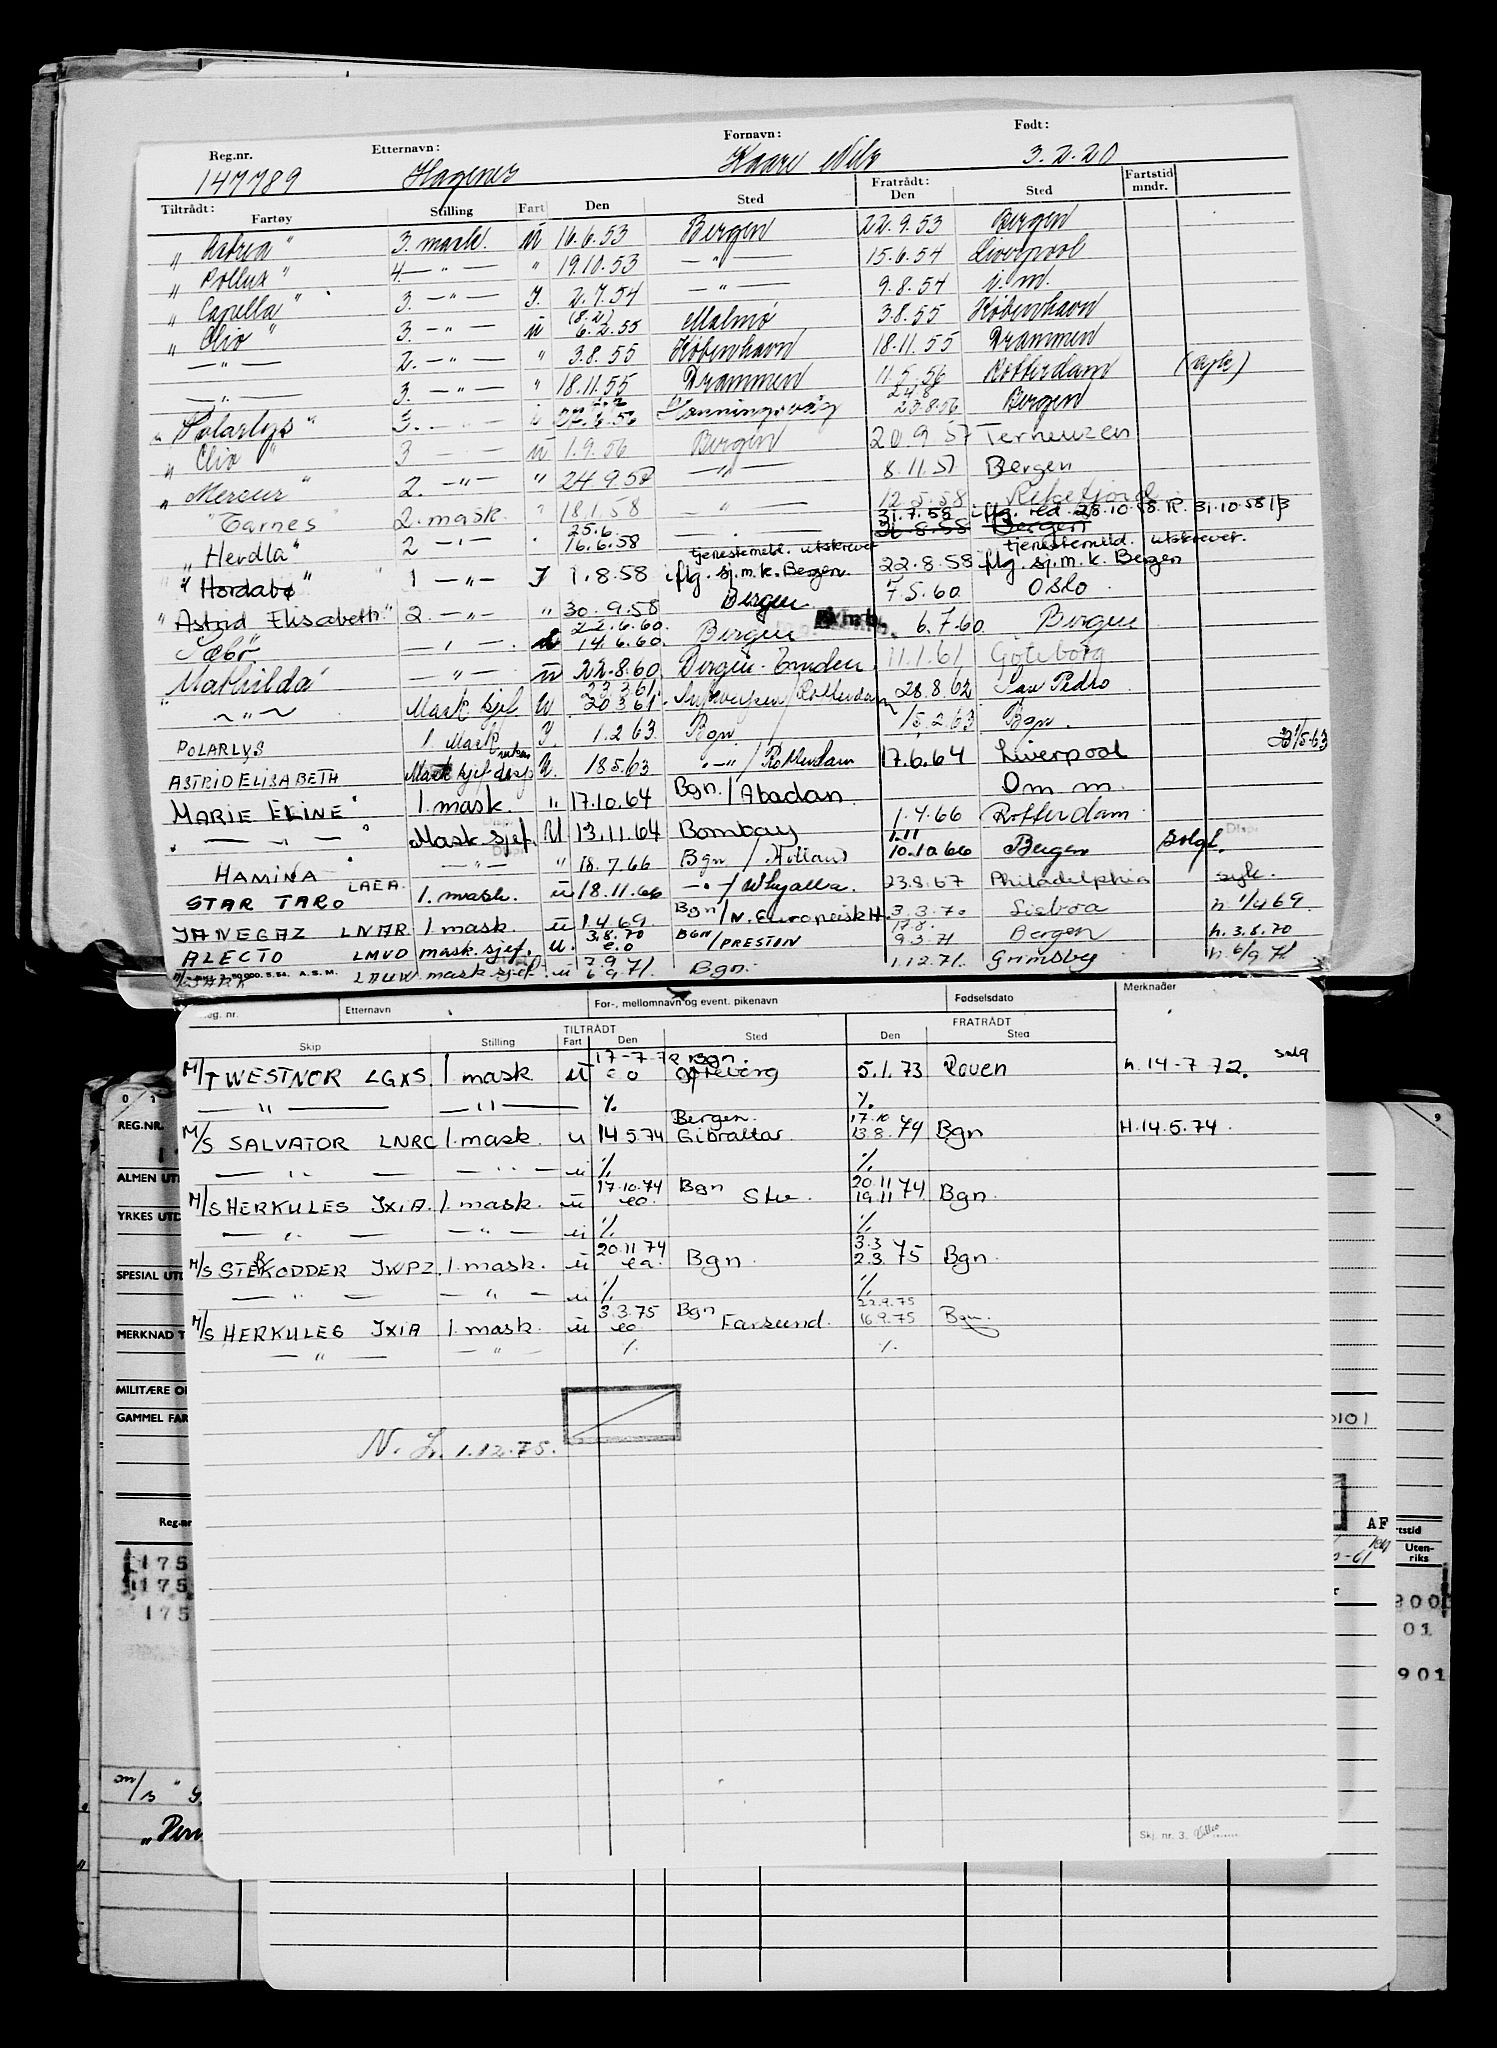 Reg.nr. Etternavn: Fornavn: Født:
147789 Hagenes Kaare Nils 3.2.20
Tiltrådt: Fratrådt: Fartstid mndr.
Fartøy Stilling Fart Den Sted Den Sted
" Astrea" 3. mask. u 16.6.53 Bergen 22.9.53 Bergen
" Pollux" 4. — " — " 19.10.53 — " — 15.6.54 Liverpool
" Capella" 3. — " — I. 2.7.54 — " — 9.8.54 i.m.
" Clio" 3. — " — u (8.2) 6.2.55 Malmø 3.8.55 København
— " — 2. — " — " 3.8.55 København 18.11.55 Drammen
— " — 3. — " — " 18.11.55 Drammen 11.5.56 Rotterdam (syk)
" Polarlys" 3. — " — i 56 Honningsvåg 24.8 23.8.56 Bergen
" Clio" 3 — " — u 1.9.56 Bergen 20.9.57 Terneuzen
" Mercur" 2. — " — " 24.9.57 — " — 8.11.57 Bergen
"Tarnes" 2. mask. " 18.1.58 — " — 12.5.58 Rekefjord
" Herdla" 2 — " — " 25.6. 16.6.58 — " — 31.7.58 31.8.58 iflg. red. 28.10.58. R. 31.10.58 Bergen
" Hordabø" 1 — " — I 1.8.58 tjenestemeld. utskrevet iflg. sj.m.k. Bergen. 22.8.58 tjenestemeld. utskrevet. iflg. sj.m.k. Bergen
" Astrid Elisabeth" 2. — " — " 30.9.58 Bergen 7.5.60 Oslo
Sæbø" — " — 22.6.60. 14.6.60. Bergen Omb. 6.7.60 Bergen
Mathilda" — " — u 22.8.60. Bergen - Emden. 11.1.61 Göteborg
" ~ " ~ Mask. sjef U 23.3.61. 20.3.61. Rotterdam 28.8.62 San Pedro
POLARLYS 1. Mask. I. 1.2.63 Bgn 15.2.63 Bgn.
ASTRID ELISABETH Mask sjef disp U. 18.5.63 " — " / Rotterdam 17.6.64 Liverpool 31/5-63
MARIE ELINE" 1. mask. " 17.10.64 Bgn. / Abadan Om m.
" — " — " Mask. sjef. U 13.11.64 Bombay 1.4.66 Rotterdam
HAMINA" Disp — " — " 18.7.66 Bgn / Holland 1.11 10.10.66 Bergen Solgt. Disp
STAR TARO LAEA. 1. mask. u 18.11.66 — " — / Whyalla. 23.8.67 Philadelphia syk.
JANEGAZ LNAR 1. mask. u 1.4.69. Bgn / N. Europeisk H. 3.3.70 Lisboa h. 1/4 69
ALECTO LMVD mask. sjef. U. 3.8.70 e.o BGN / PRESTON 17.8. 9.3.71 Bergen h. 3.8.70
LAUW mask. sjef. u 7.9.71 6.9.71. Bgn. 1.12.71. Grimsby h. 6/9 71
Reg. nr. Etternavn For-, mellomnavn og event. pikenavn Fødselsdato Merknader
TILTRÅDT FRATRÅDT
Skip Stilling Fart Den Sted Den Sted
M/T WESTNOR LGXS 1 mask u 17-7-72 eo Bgn. Gøteborg 5.1.73 Rouen h. 14-7 72. salg
— " — — " — % %
M/S SALVATOR LNRC 1. mask. u 14.5.74 Bergen. Gibraltar. 17.10 13.8. 74 Bgn H. 14.5.74.
— " — — " — u % %
M/S HERKULES JXIA. 1. mask. u 17.10.74 eo. Bgn Stv. 20.11 19.11 74 Bgn.
— " — — " — u % %
M/S STERKODDER JWPZ. 1. mask. u 20.11.74 eo. Bgn. 3.3 2.3. 75 Bgn.
— " — — " — u % %
M/S HERKULES JXIA 1. mask. u 3.3.75 eo. Bgn Farsund. 22.9.75 16.9.75 Bgn.
— " — — " — % %
N. L. 1.12.75.
Skj. nr. 3.
REG.NR.
ALMEN UT
YRKES UTD
SPESIAL UTD
MERKNAD T
MILITÆRE O
GAMMEL FAR
0101
Reg.nr
AF
rtstid
Uten-riks
175
175
175
900
01
901
m/s "
"